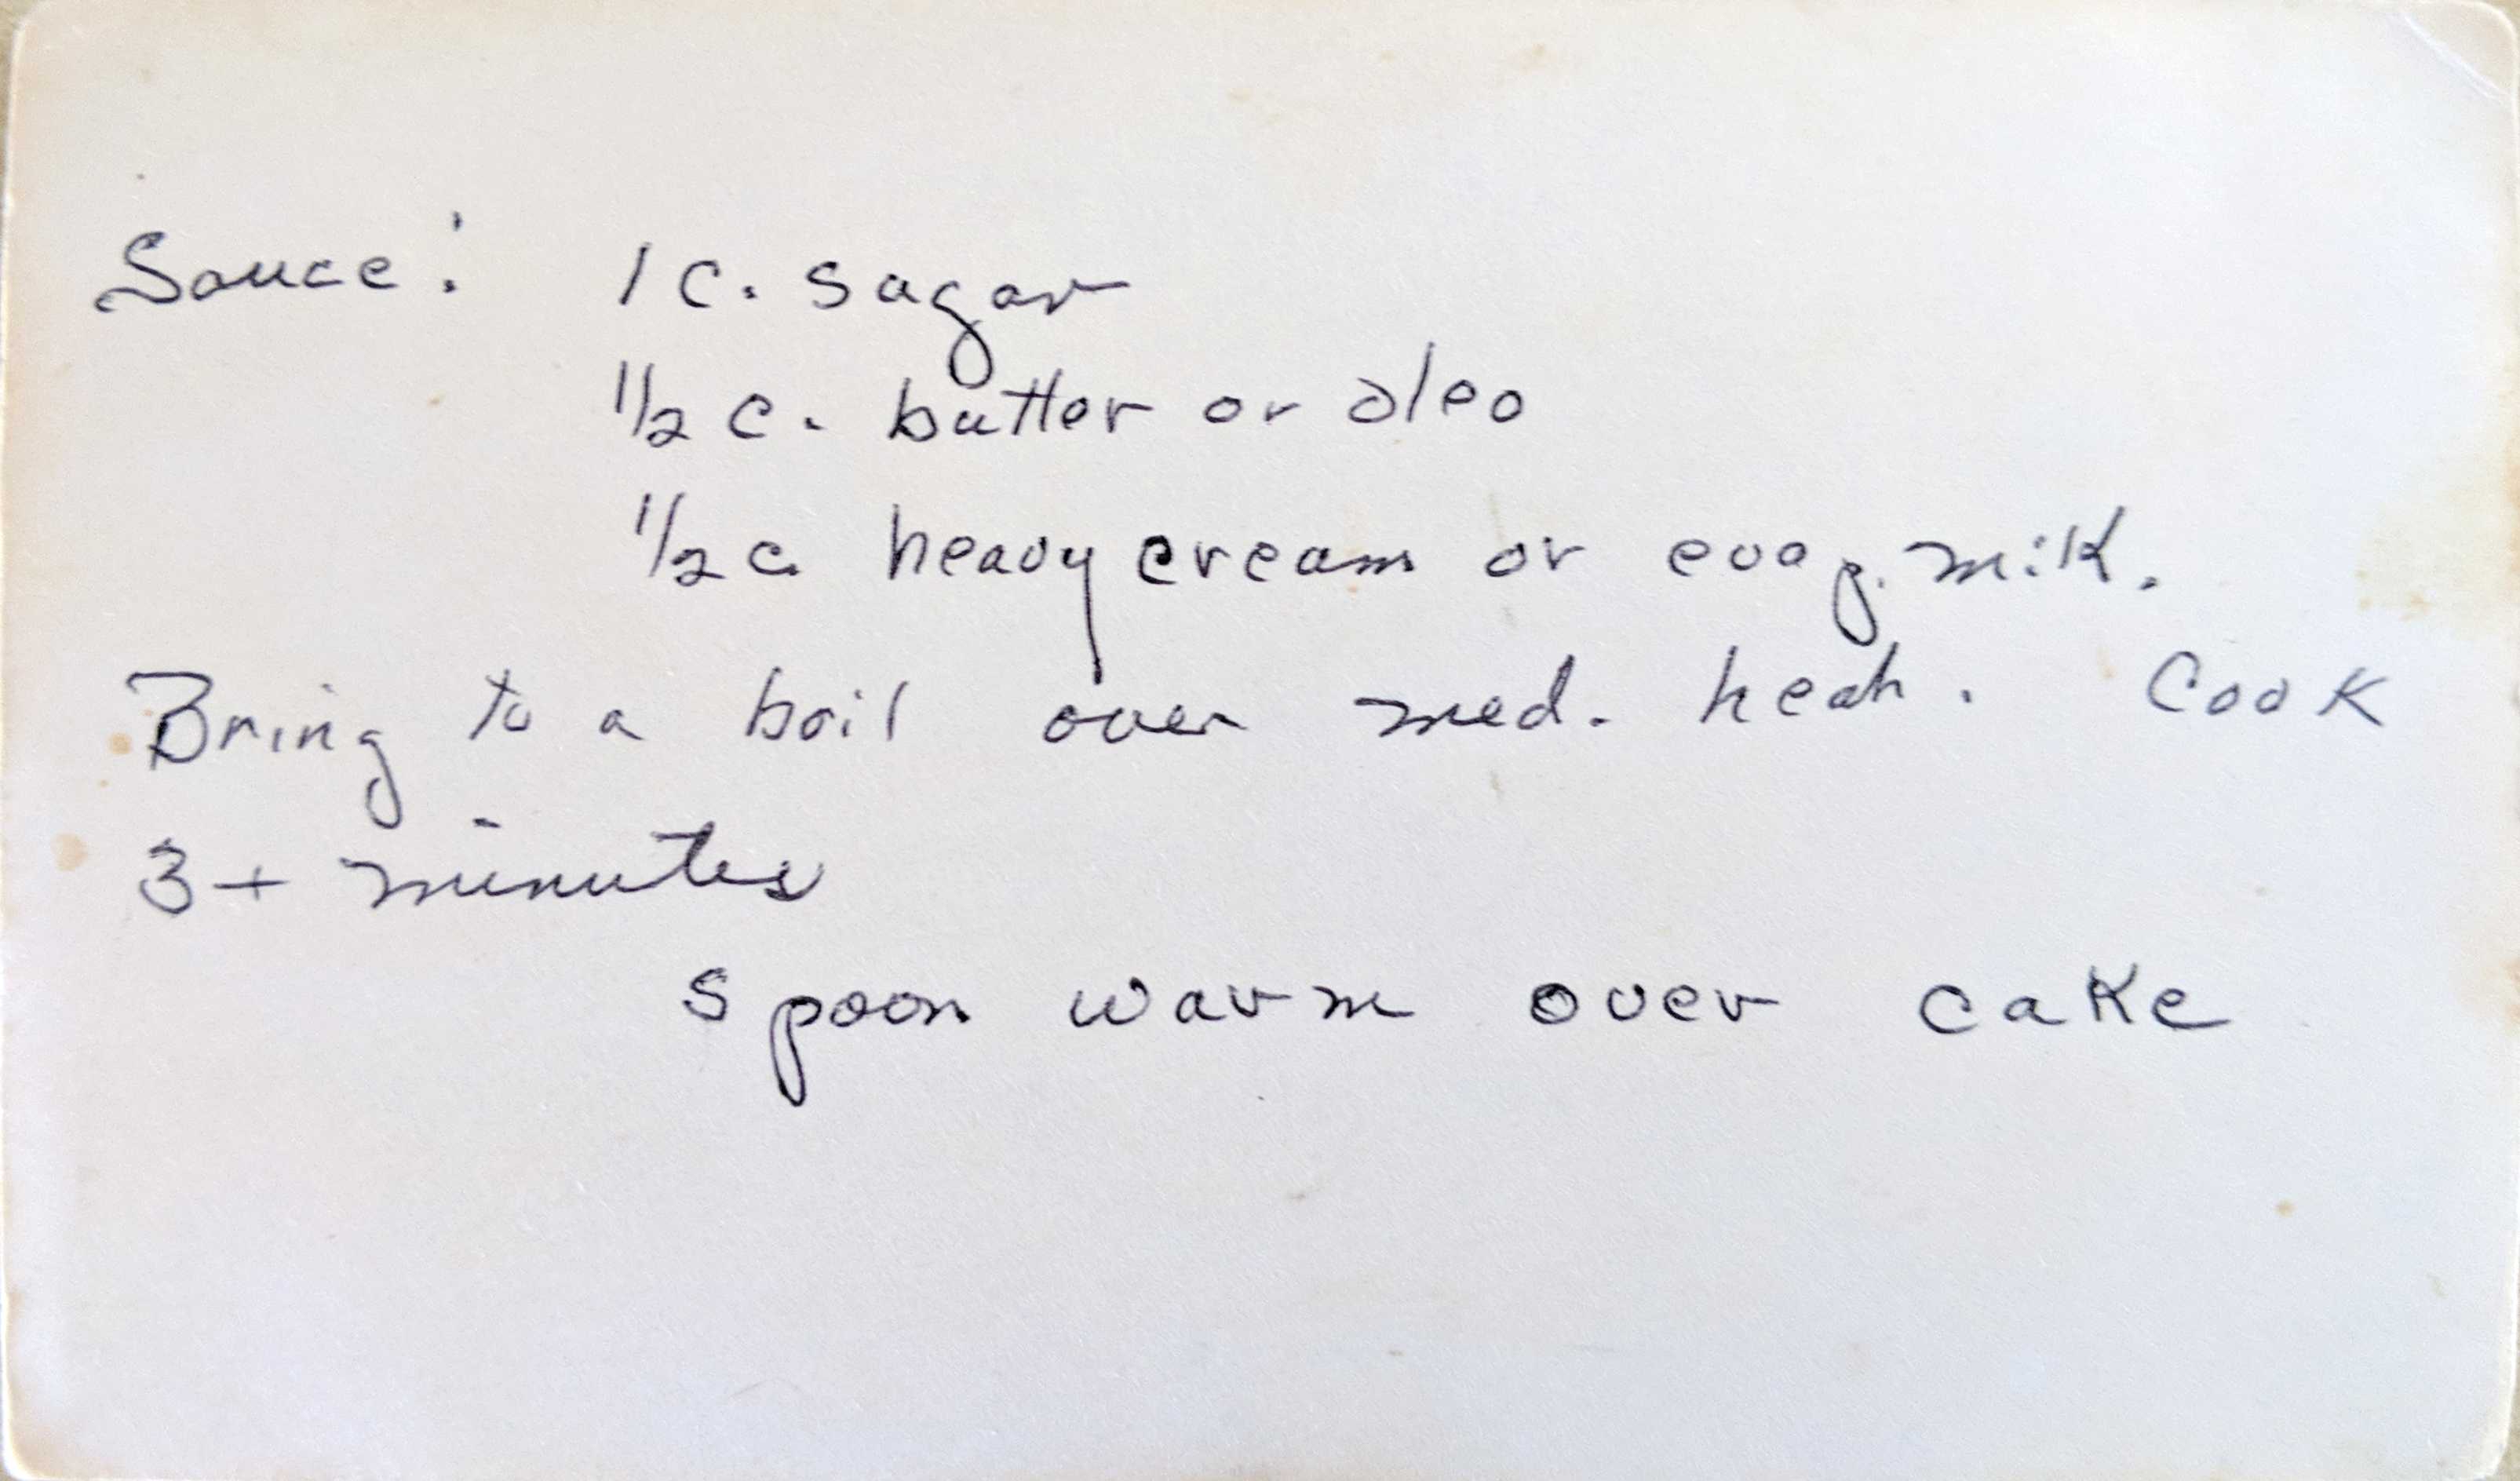 Sauce: 1 c. sugar
1/2 c. butter or oleo
1/2 c. heavy cream or evap. milk.
Bring to a boil over med. heat. Cook
3+ minutes
spoon warm over cake